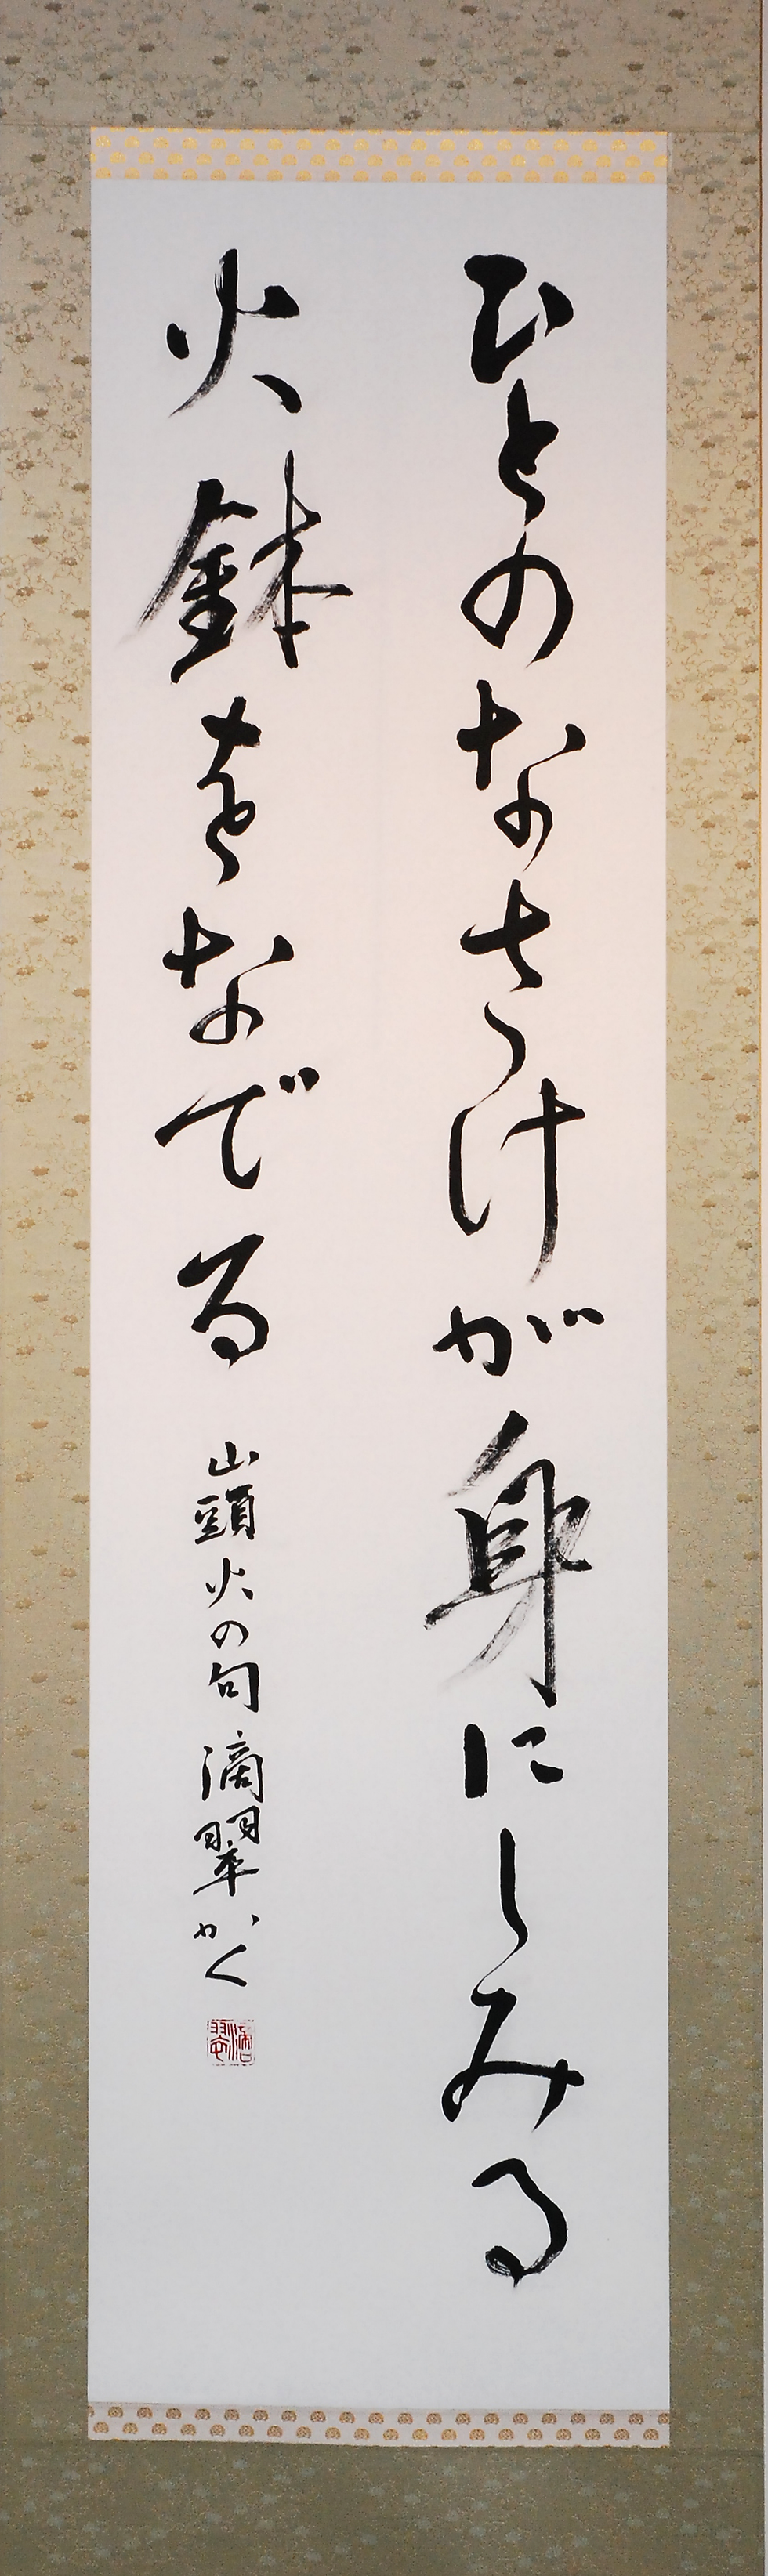 ひとのなさけが身にしみる
火鉢をなでる 山頭火の句 滴翠かく